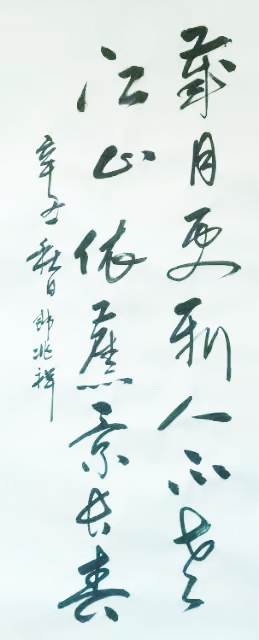 歲月更新人不老
江山依舊景长春
辛丑秋日 兆祥